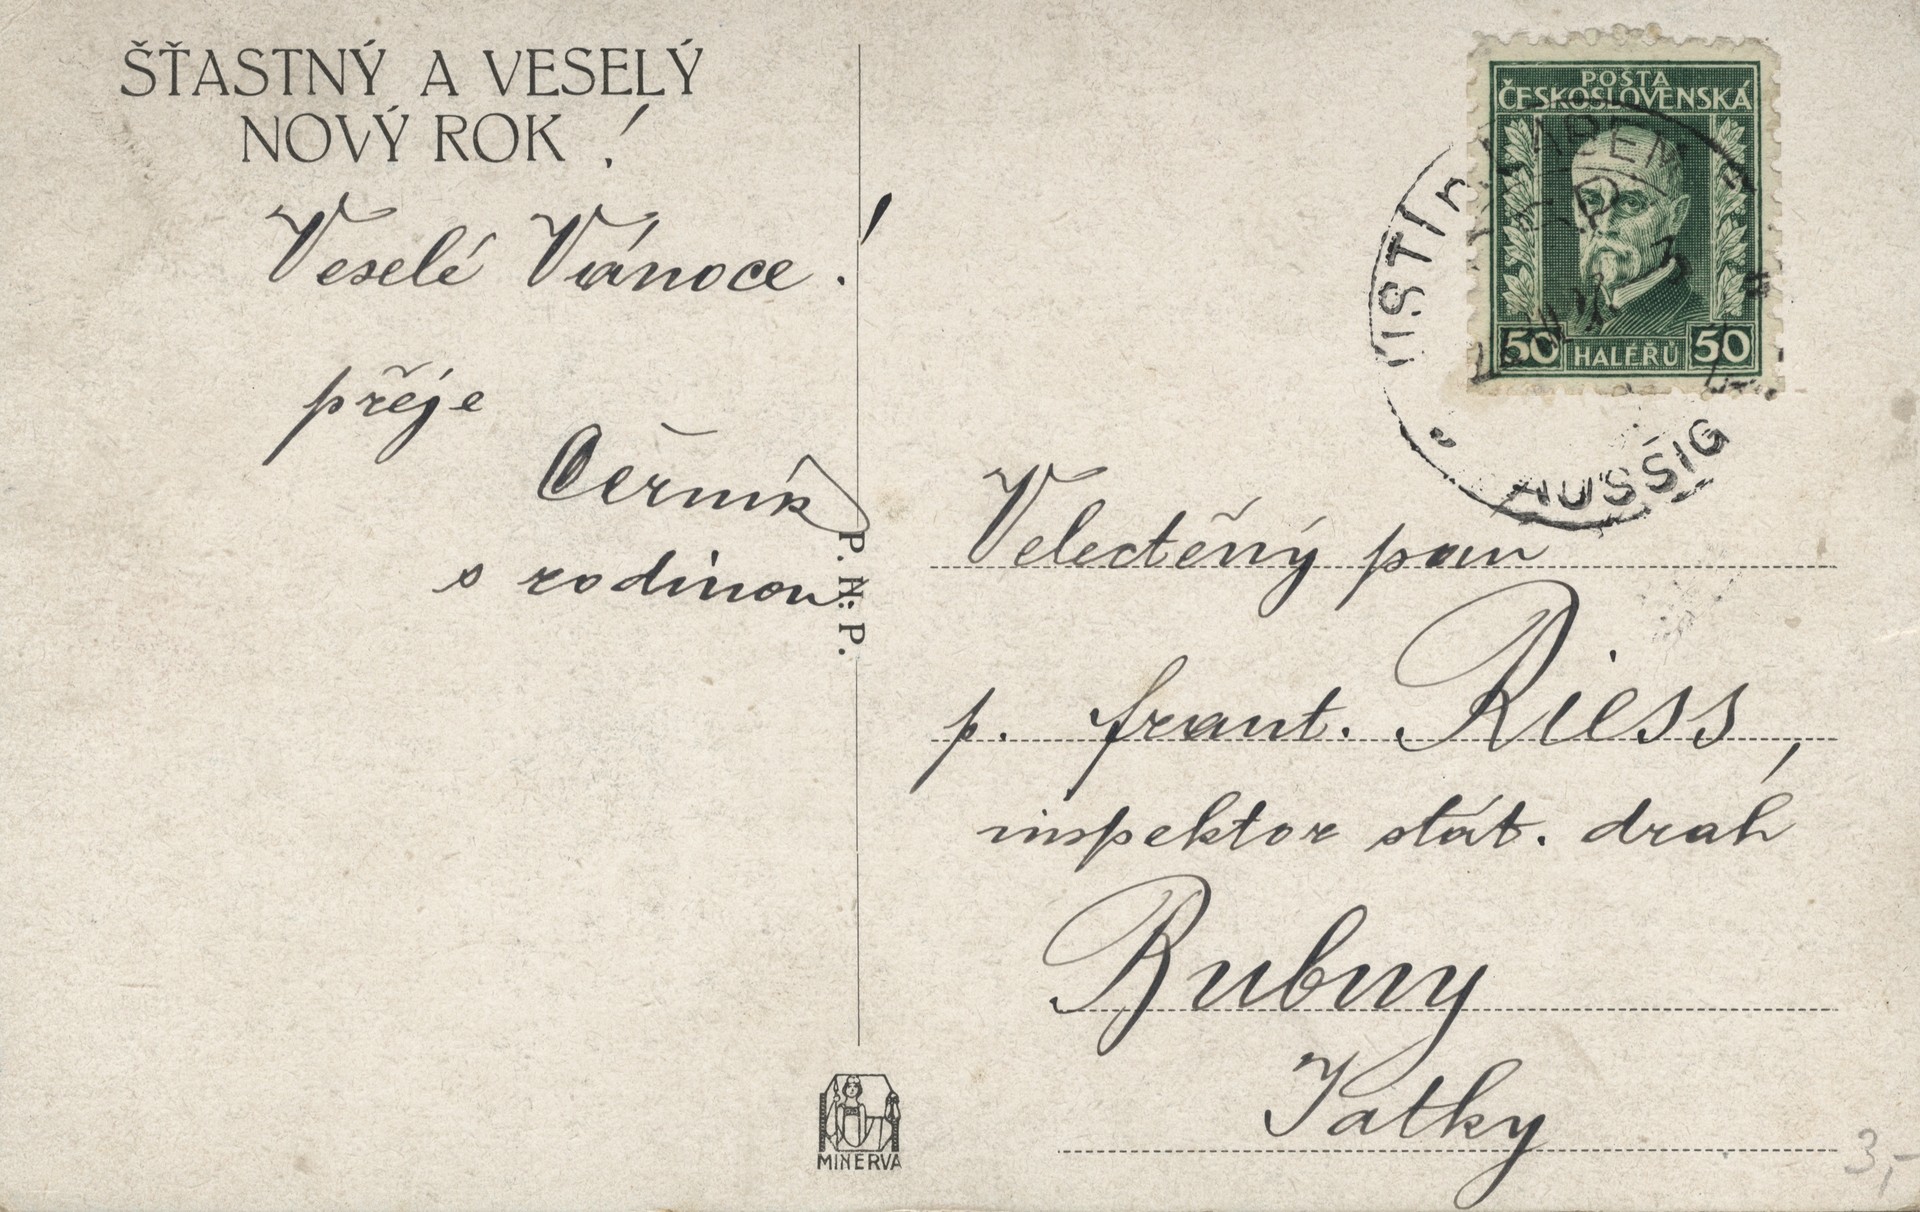 ŠŤASTNÝ A VESELÝ
NOVÝ ROK !
Veselé Vánoce !
přeje
Černík
s rodinou.
P. N. P.
MINERVA
POŠTA
ČESKOSLOVENSKÁ
50 HALÉŘŮ 50
ÚSTÍ n. LABEM
AUSSIG
Velectěný pan
p. frant. Riess,
inspektor stát. drah
Bubny
Jatky
3,-